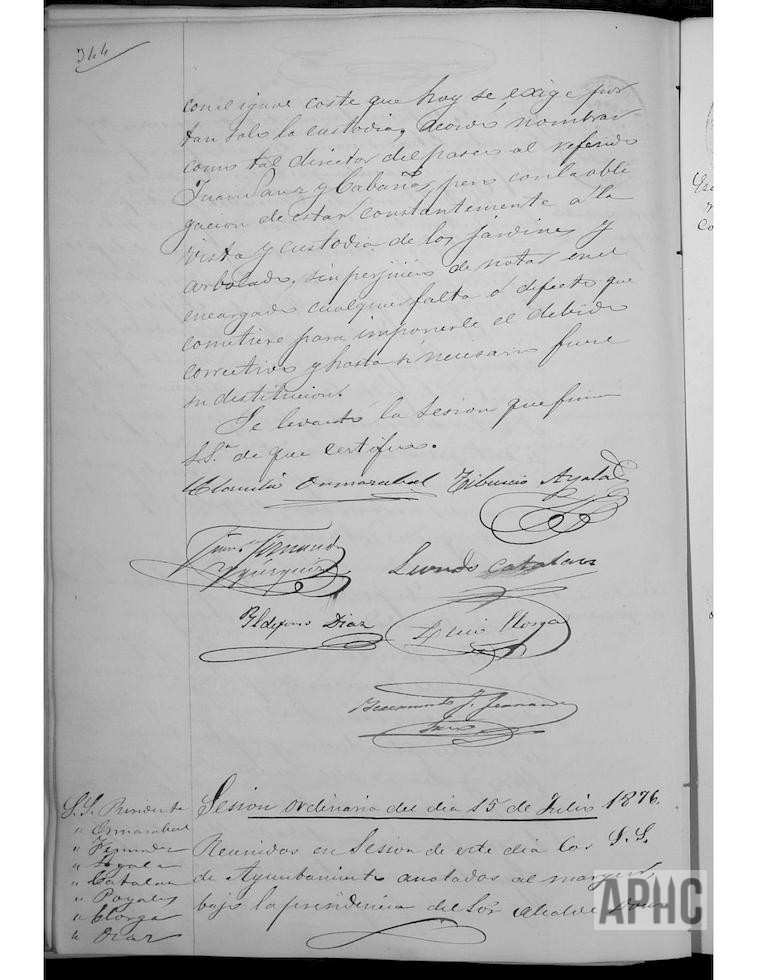 344
con el igual coste que hoy se exige por
tan solo la custodia, acordó nombrar
como tal director del paseo al referido
Juan Sanz y Cabañas, pero con la obli
gacion de estar constantemente á la
vista y custodia de los jardines y
arbolado, sin perjuicio de notar en el
encargado cualquier falta ó defecto que
cometiere para imponerle el debido
correctivo y hasta si necesario fuere
su destitucion.
Se levantó la sesion que firman
S.S.ª de que certifico.
Ormazabal Tiburcio Ayala
Fernandez
Catalan
Yldefonso Diaz
Llorga
J. Fernandez
S.S. Presidente
" Ormazabal
" Fernandez
" Ayala
" Catalan
" Poyales
" Llorga
" Diaz
Sesion ordinaria del dia 15 de Julio 1876.
Reunidos en Sesion de este dia los S.S.
de Ayuntamiento anotados al margen,
bajo la presidencia del Sor Alcalde Don
APHC